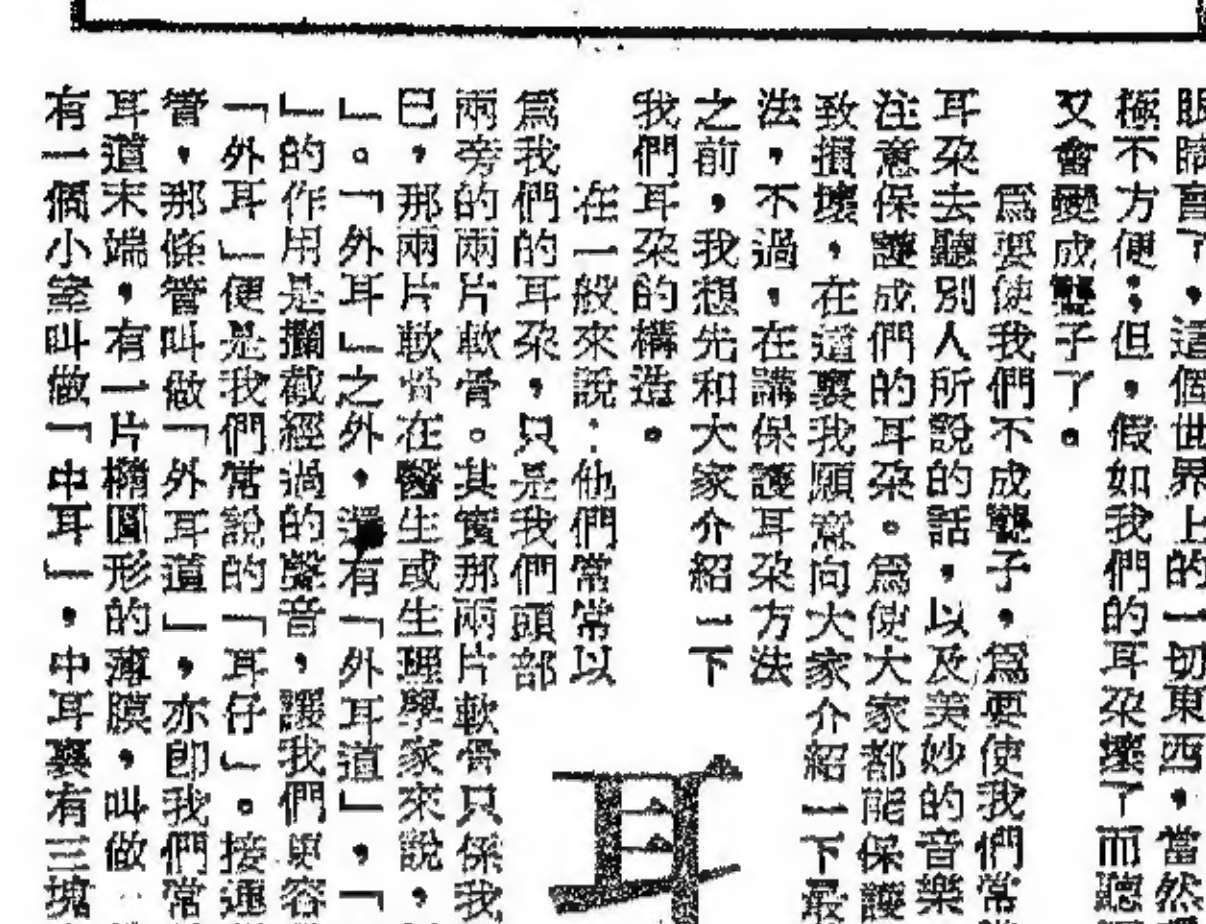 眼睛盲了，這個世界上的一切東西，當然
極不方便；但，假如我們的耳朶壞了而聽
又會變成聾子了。
為要使我們不成聾子，為要使我們常
耳朶去聽別人所說的話，以及美妙的音樂
注意保護成們的耳朶。為使大家都能保護
致損壞，在這裏我願意向大家介紹一下最
法，不過，在講保護耳朶方法
之前，我想先和大家介紹一下
我們耳朶的構造。
在一般來說：他們常常以
為我們的耳朶，只是我們頭部
兩旁的兩片軟骨。其實那兩片軟骨只係我
已，那兩片軟骨在醫生或生理學家來說，
」。「外耳」之外，還有「外耳道」，「
」的作用是攔截經過的聲音，讓我們更容
「外耳」便是我們常說的「耳仔」。接連
管，那條管叫做「外耳道」，亦即我們常
耳道末端，有一片橢圓形的薄膜，叫做
有一個小室叫做「中耳」，中耳裏有三塊
耳